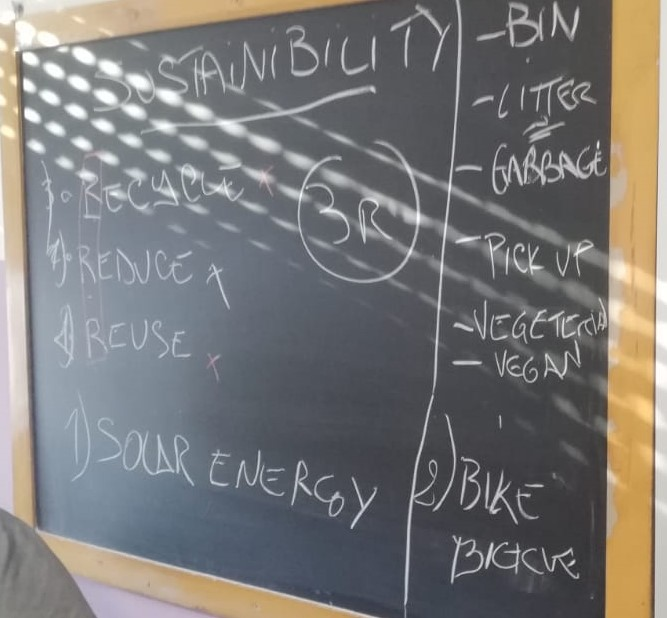 SUSTAINIBILITY
RECYCLE x
REDUCE x
REUSE x
3R
1) SOLAR ENERGY
- BIN
- LITTER
- GARBBAGE
- PICK UP
- VEGETERIA
- VEGAN
2) BIKE